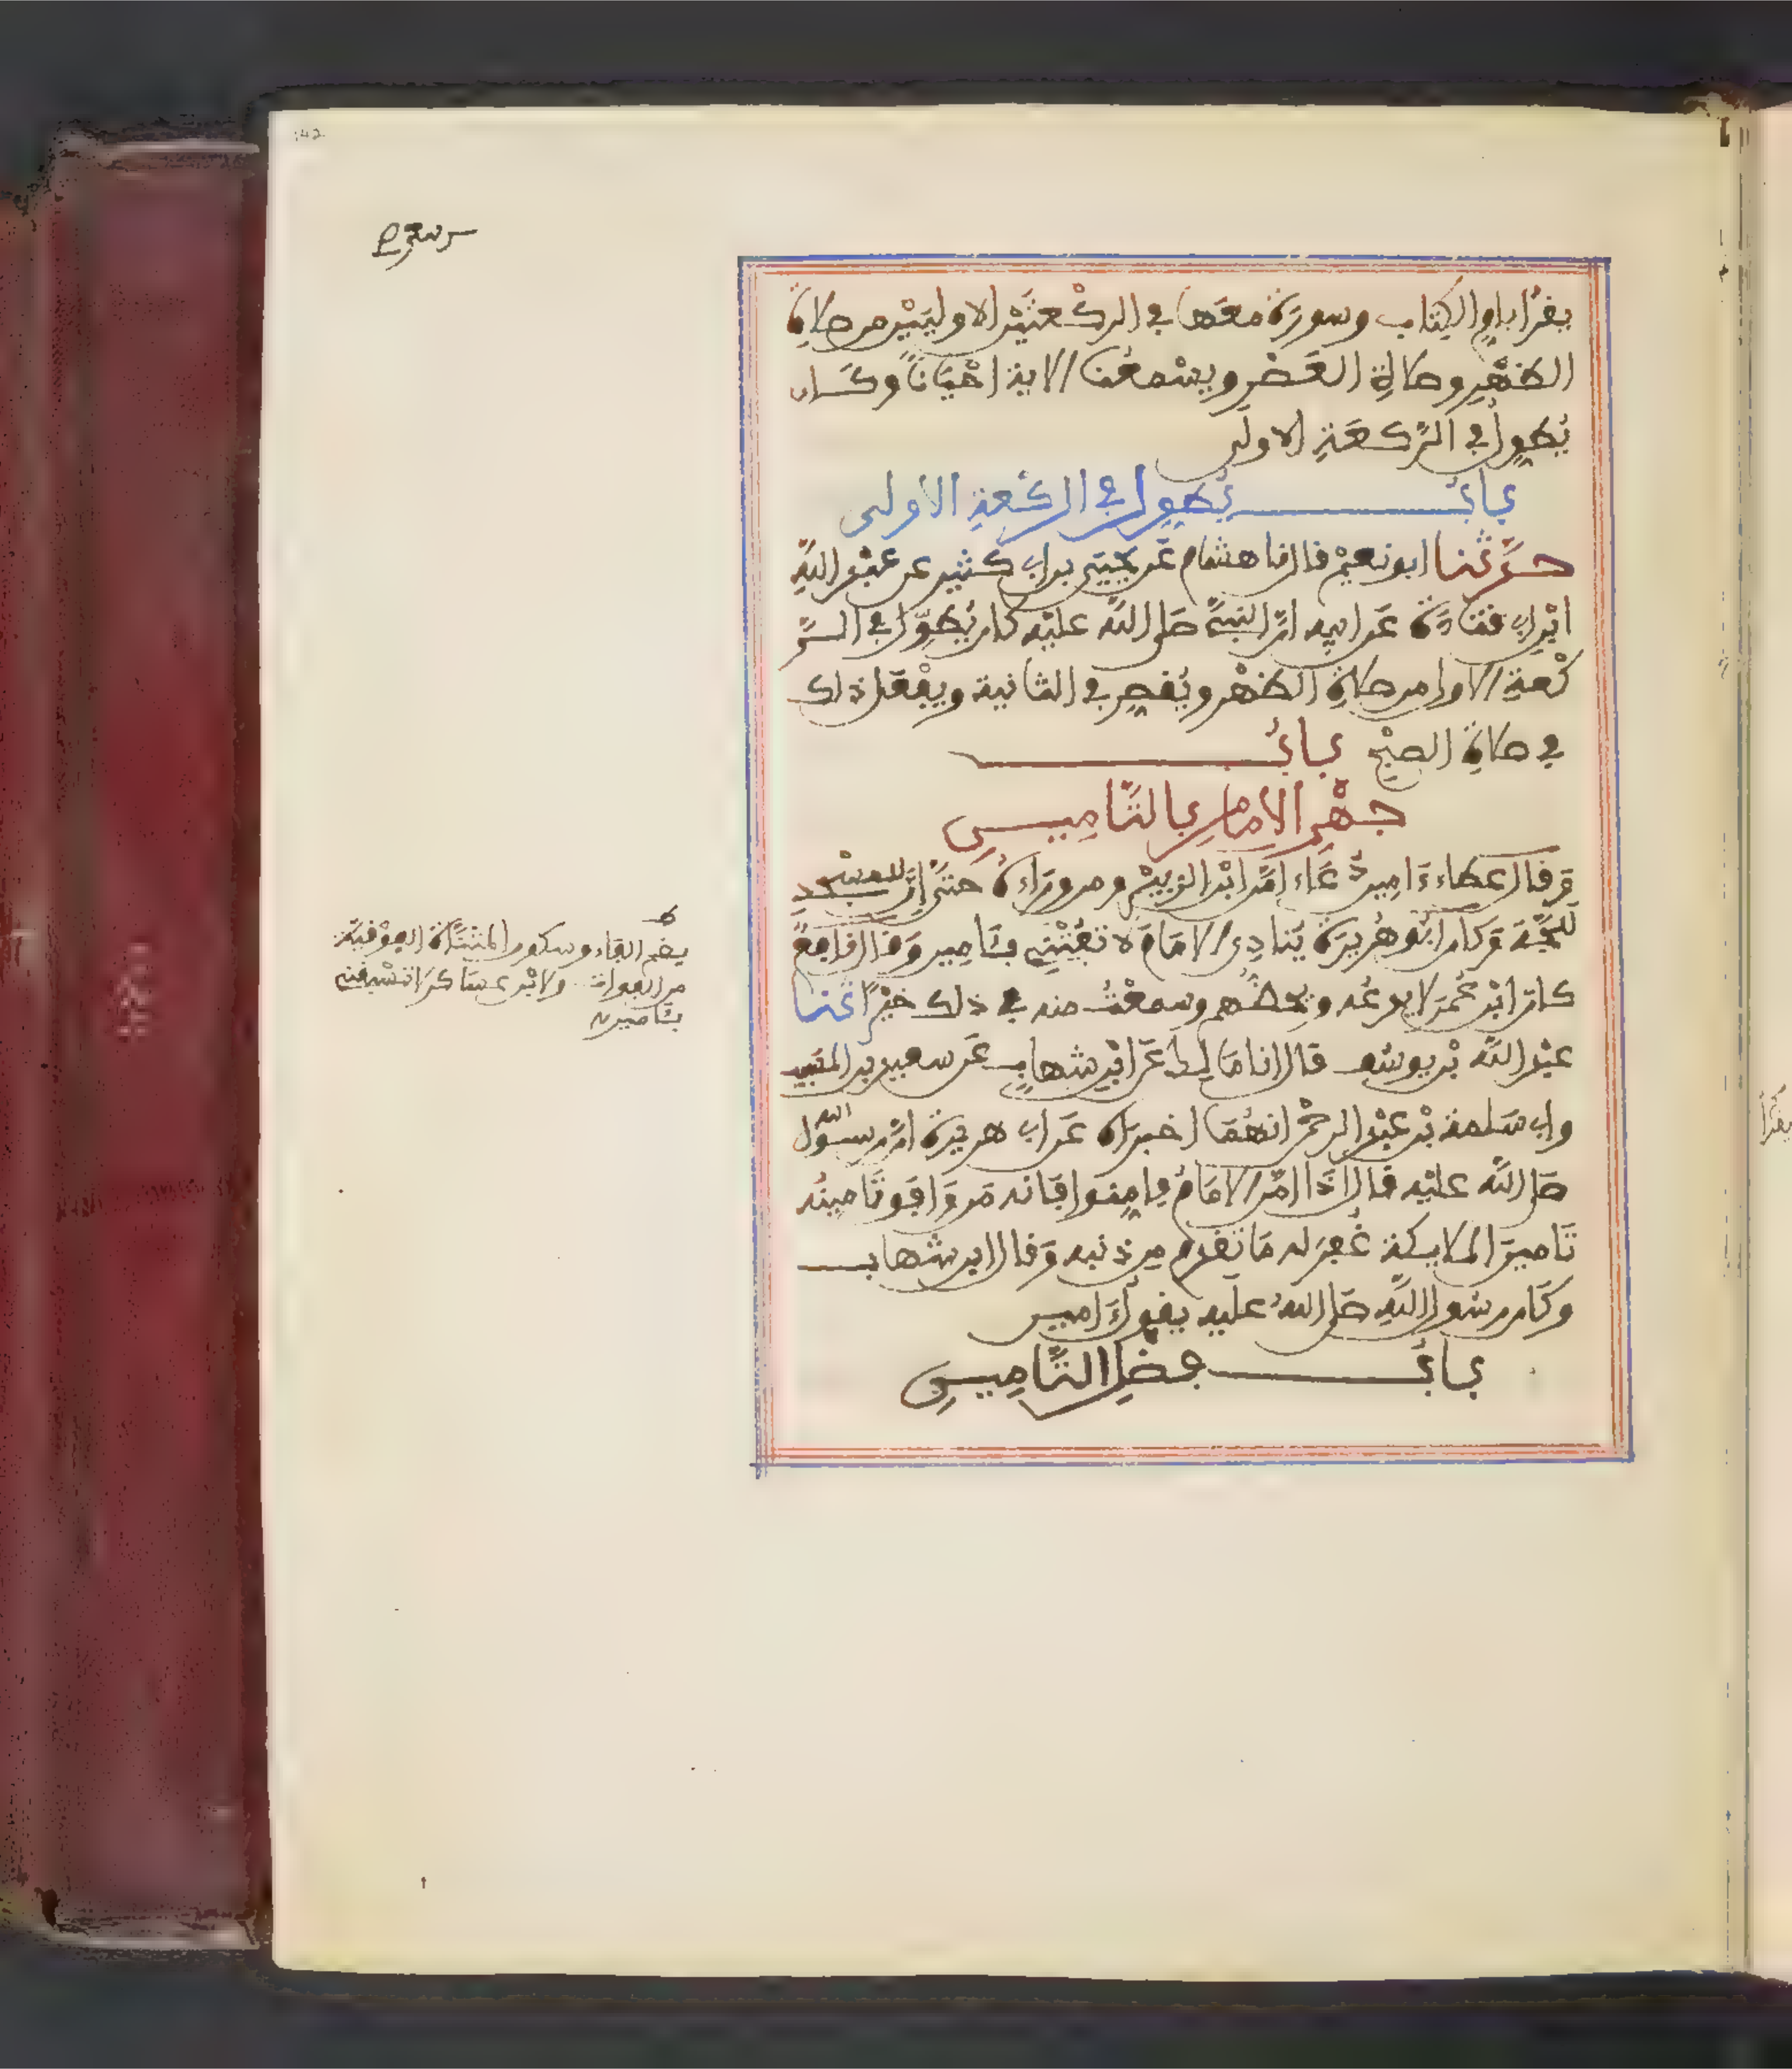 يقرأ بأم الكتاب وسورة معها في الركعتين الاوليين من صلاة
الظهر وصلاة العصر ويسمعنا الاية احيانا وكان
يطيل في الركعة الاولى
باب يطول في الركعة الأولى
حدثنا ابو نعيم قال انا هشام عن يحيى بن ابي كثير عن عبد الله
ابن ابي قتادة عن ابيه ان النبي صلى الله عليه كان يطول في الر
كعة الاولى من صلاة الظهر ويقصر في الثانية ويفعل ذلك
في صلاة الصبح باب
جهر الإمام بالتأمين
وقال عطاء ءامين دعاء امن ابن الزبير ومن وراءه حتى ان للمسجد
للجة وكان ابو هريرة ينادي الامام لا تفتني بئامين وقال نافع
كان ابن عمر لا يدعه ويحضهم وسمعت منه في ذلك خيرا ثنا
عبد الله بن يوسف قال انا مالك عن ابن شهاب عن سعيد بن المسيب
وابي سلمة بن عبد الرحمن انهما اخبراه عن ابي هريرة ان رسول الله
صلى الله عليه قال اذا امن الامام فامنوا فانه من وافق تامينه
تامين الملايكة غفر له ما تقدم من ذنبه وقال ابن شهاب
وكان رسول الله صلى الله عليه يقول ءامين
باب فضل التأمين
بضم الفاء وسكون المثناة الفوقية
من الفوات ولابن عساكر لا تسبقني
بئامين